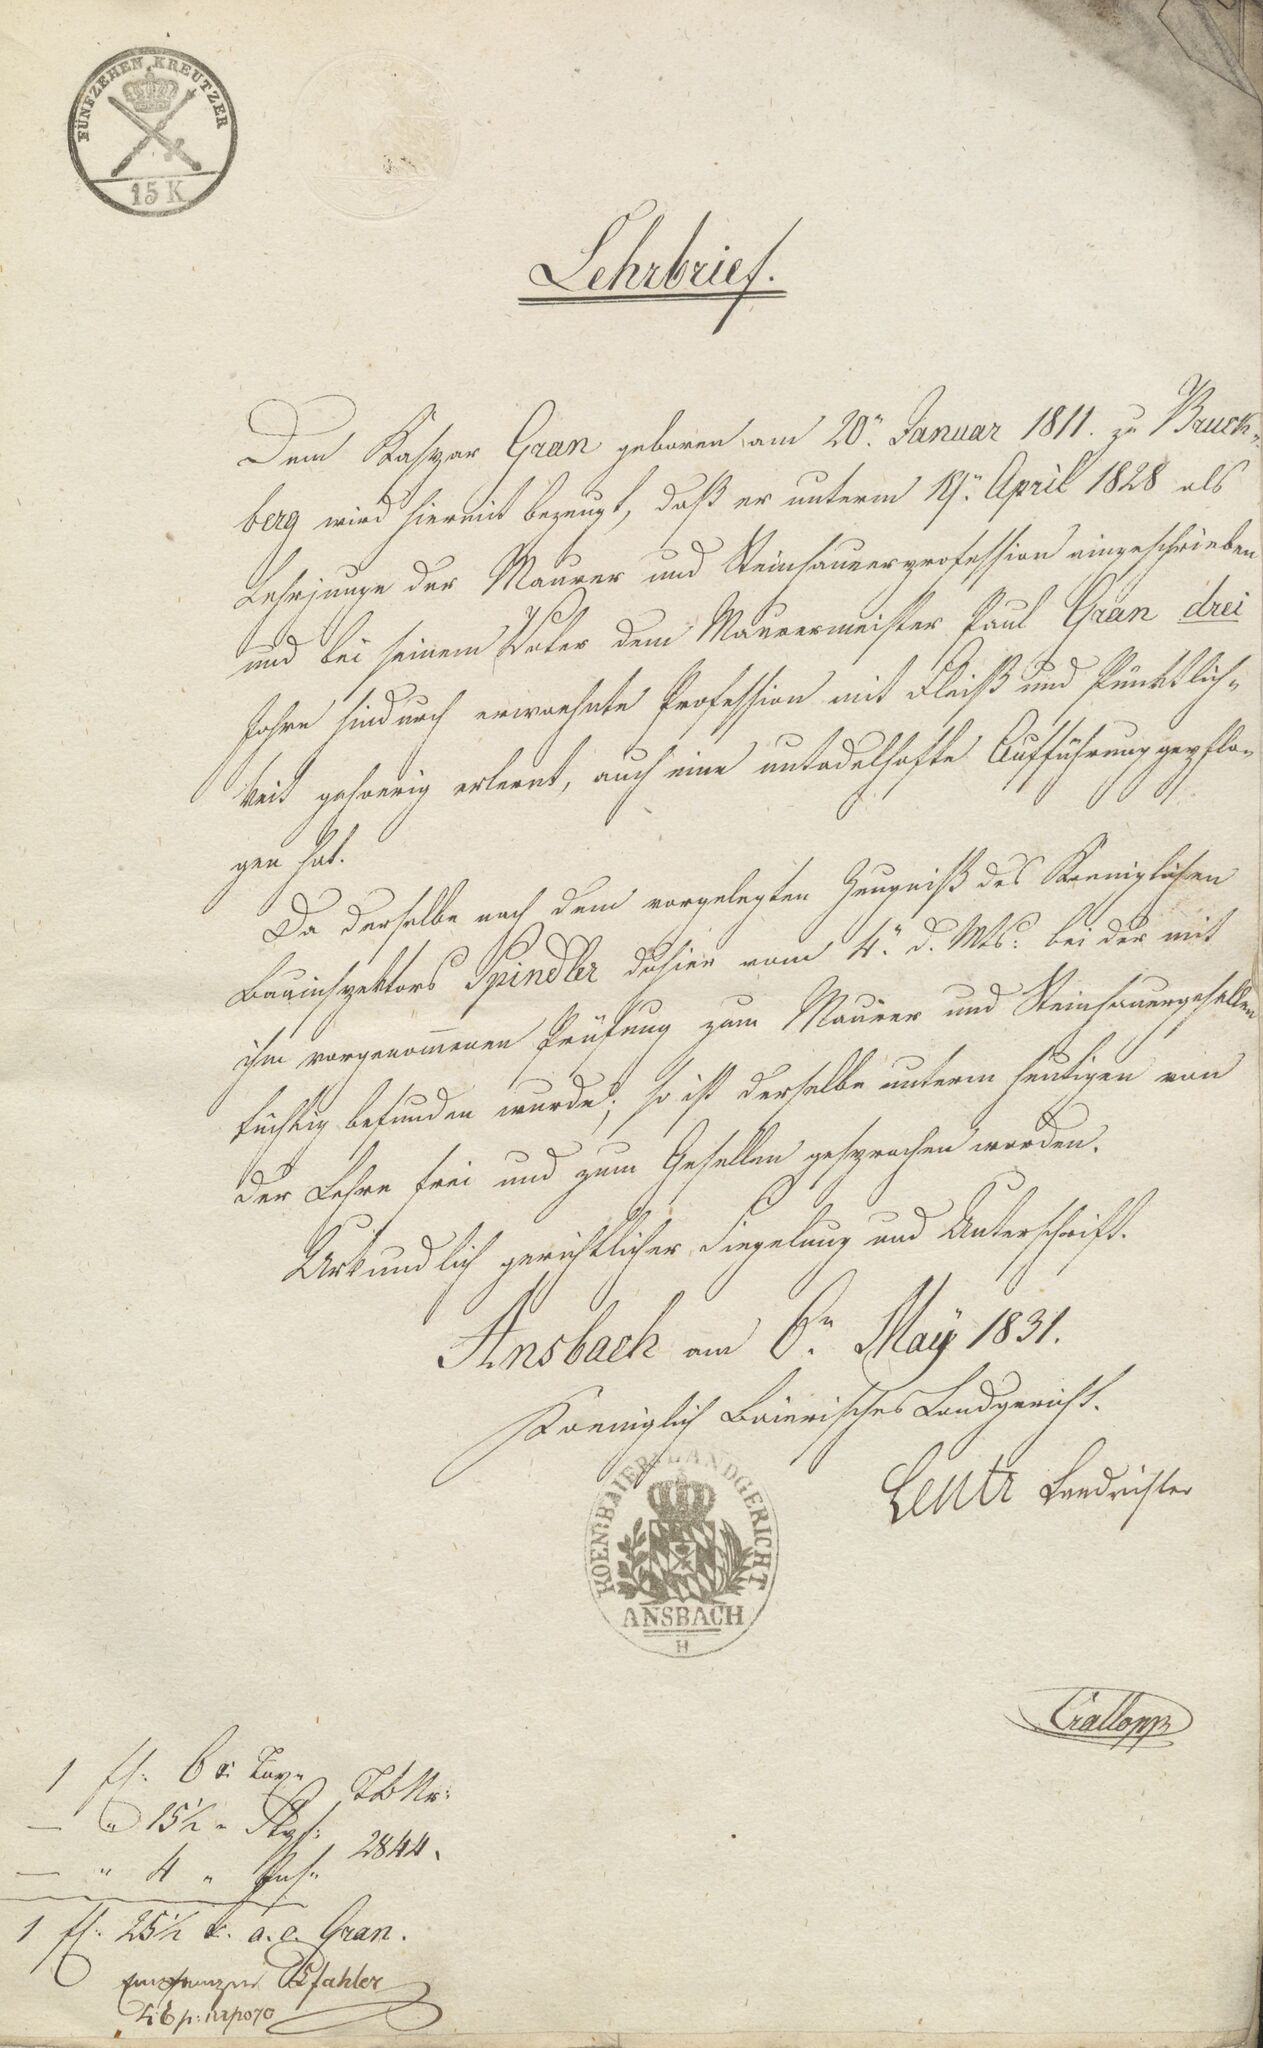 FÜNFZEHEN KREUTZER
15 K
Lehrbrief.
Dem Kaspar Gran geboren am 20n. Januar 1811. zu Bruck-
berg wird hiermit bezeugt, daß er unterm April 1828 als
Lehrjunge der Maurer und Steinhauerprofession eingeschrieben
und bei seinem Vater dem Maurermeister Paul Gran drei
Jahre hindurch erwaehnte Profession mit Fleiß und Pünktlich-
keit gehoerig erlernt, auch eine untadelhafte Aufführung gepflo-
gen hat.
Da derselbe nach dem vorgelegten Zeugniß des Koeniglichen
Bauinspektors Spindler dahier vom 4n. d. Mts: bei der mit
ihm vorgenom̄enen Prüfung zum Maurer und Steinhauergesellen
tüchtig befunden wurde; so ist derselbe unterm heutigen von
der Lehre frei und zum Gesellen gesprochen worden.
Urkundlich gerichtlicher Siegelung und Unterschrift.
Ansbach am 6n. Maÿ 1831.
Koeniglich Baierisches Landgericht.
Landrichter
KOEN: BAIER: LANDGERICHT
ANSBACH
H
1 fl. 6 k. Tax.
— " 15½ "
— " 4 "
Tb Nr:
2844.
1 fl. 25½ k. a. c. Gran.
Pfahler